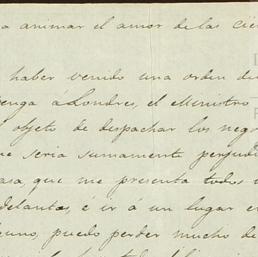 a animar el amor de las cie
haber venido una orden de
enga á Londres, el Ministro
objeto de despachar los nego
ue seria sumamente perjudi
asa, que me presenta todos
delantos, é ir á un lugar en
guno, puedo perder mucho de